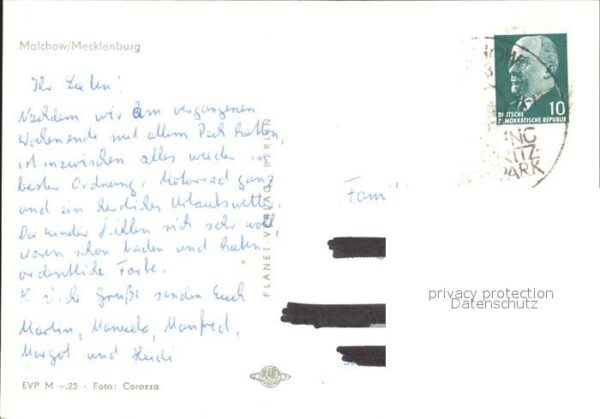 Malchow/Mecklenburg
Ihr Lieben!
Nachdem wir am vergangenen
Wochenende mit allem Pech hatten,
ist inzwischen alles wieder in
bester Ordnung, Motorrad ganz
und ein herrliches Urlaubswetter.
Die Kinder fühlen sich sehr wohl,
waren schon baden und haben
ordentliche Farbe.
viele Grüße senden Euch
Martin, Manuela, Manfred,
Margot und Heidi
EVP M –,25 · Foto: Carozza
PLANET VERLAG BERLIN
PLANET
10
DEUTSCHE
DEMOKRATISCHE REPUBLIK
PARK
Fami
privacy protection
Datenschutz